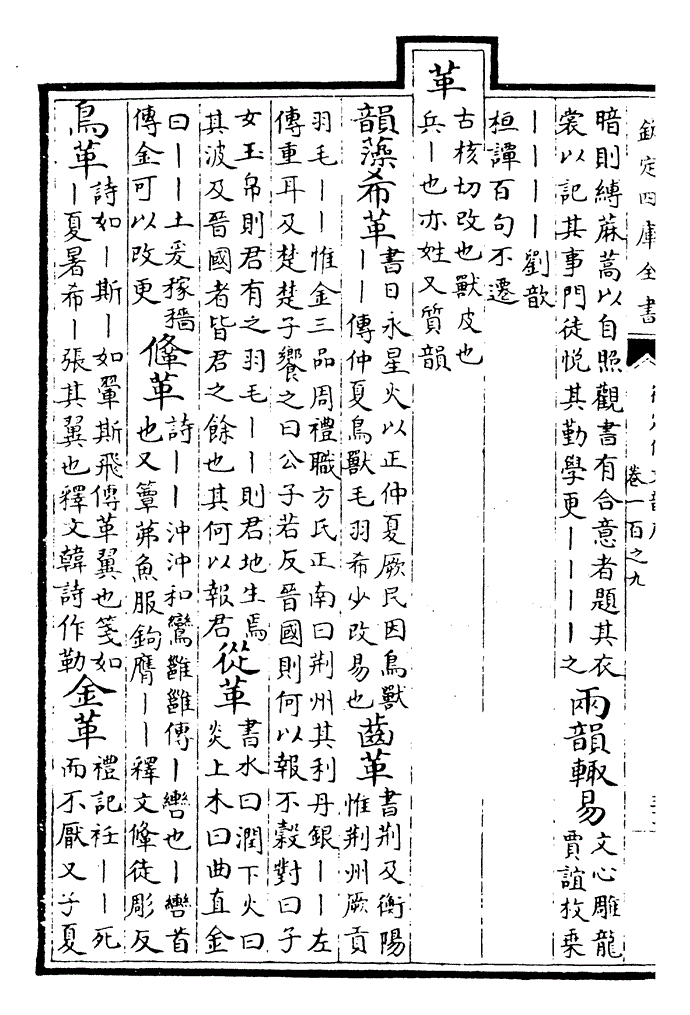 欽定四庫全書
卷一百之九
暗則縛蔴蒿以自照觀書有合意者題其衣
裳以記其事門徒悅其勤學更丨丨丨丨之
兩韻輙易
文心雕龍
賈誼枚乗
丨丨丨丨劉歆
桓譚百句不遷
革
古核切改也獸皮也
兵丨也亦姓又質韻
韻藻希革
書日永星火以正仲夏厥民因鳥獸
丨丨傳仲夏鳥獸毛羽希少改易也
齒革
書荆及衡陽
惟荆州厥貢
羽毛丨丨惟金三品周禮職方氏正南曰荆州其利丹銀丨丨左
傳重耳及楚楚子饗之曰公子若反晉國則何以報不穀對曰子
女玉帛則君有之羽毛丨丨則君地生焉
其波及晉國者皆君之餘也其何以報君
從革
書水曰潤下火曰
炎上木曰曲直金
曰丨丨土爰稼穡
傳金可以改更
鞗革
詩丨丨沖沖和鸞雝雝傳丨轡也丨轡首
也又簟茀魚服鉤膺丨丨釋文鞗徒彫反
鳥革
詩如丨斯丨如翬斯飛傳革翼也箋如
丨夏暑希丨張其翼也釋文韓詩作勒
金革
禮記衽丨丨死
而不厭又子夏